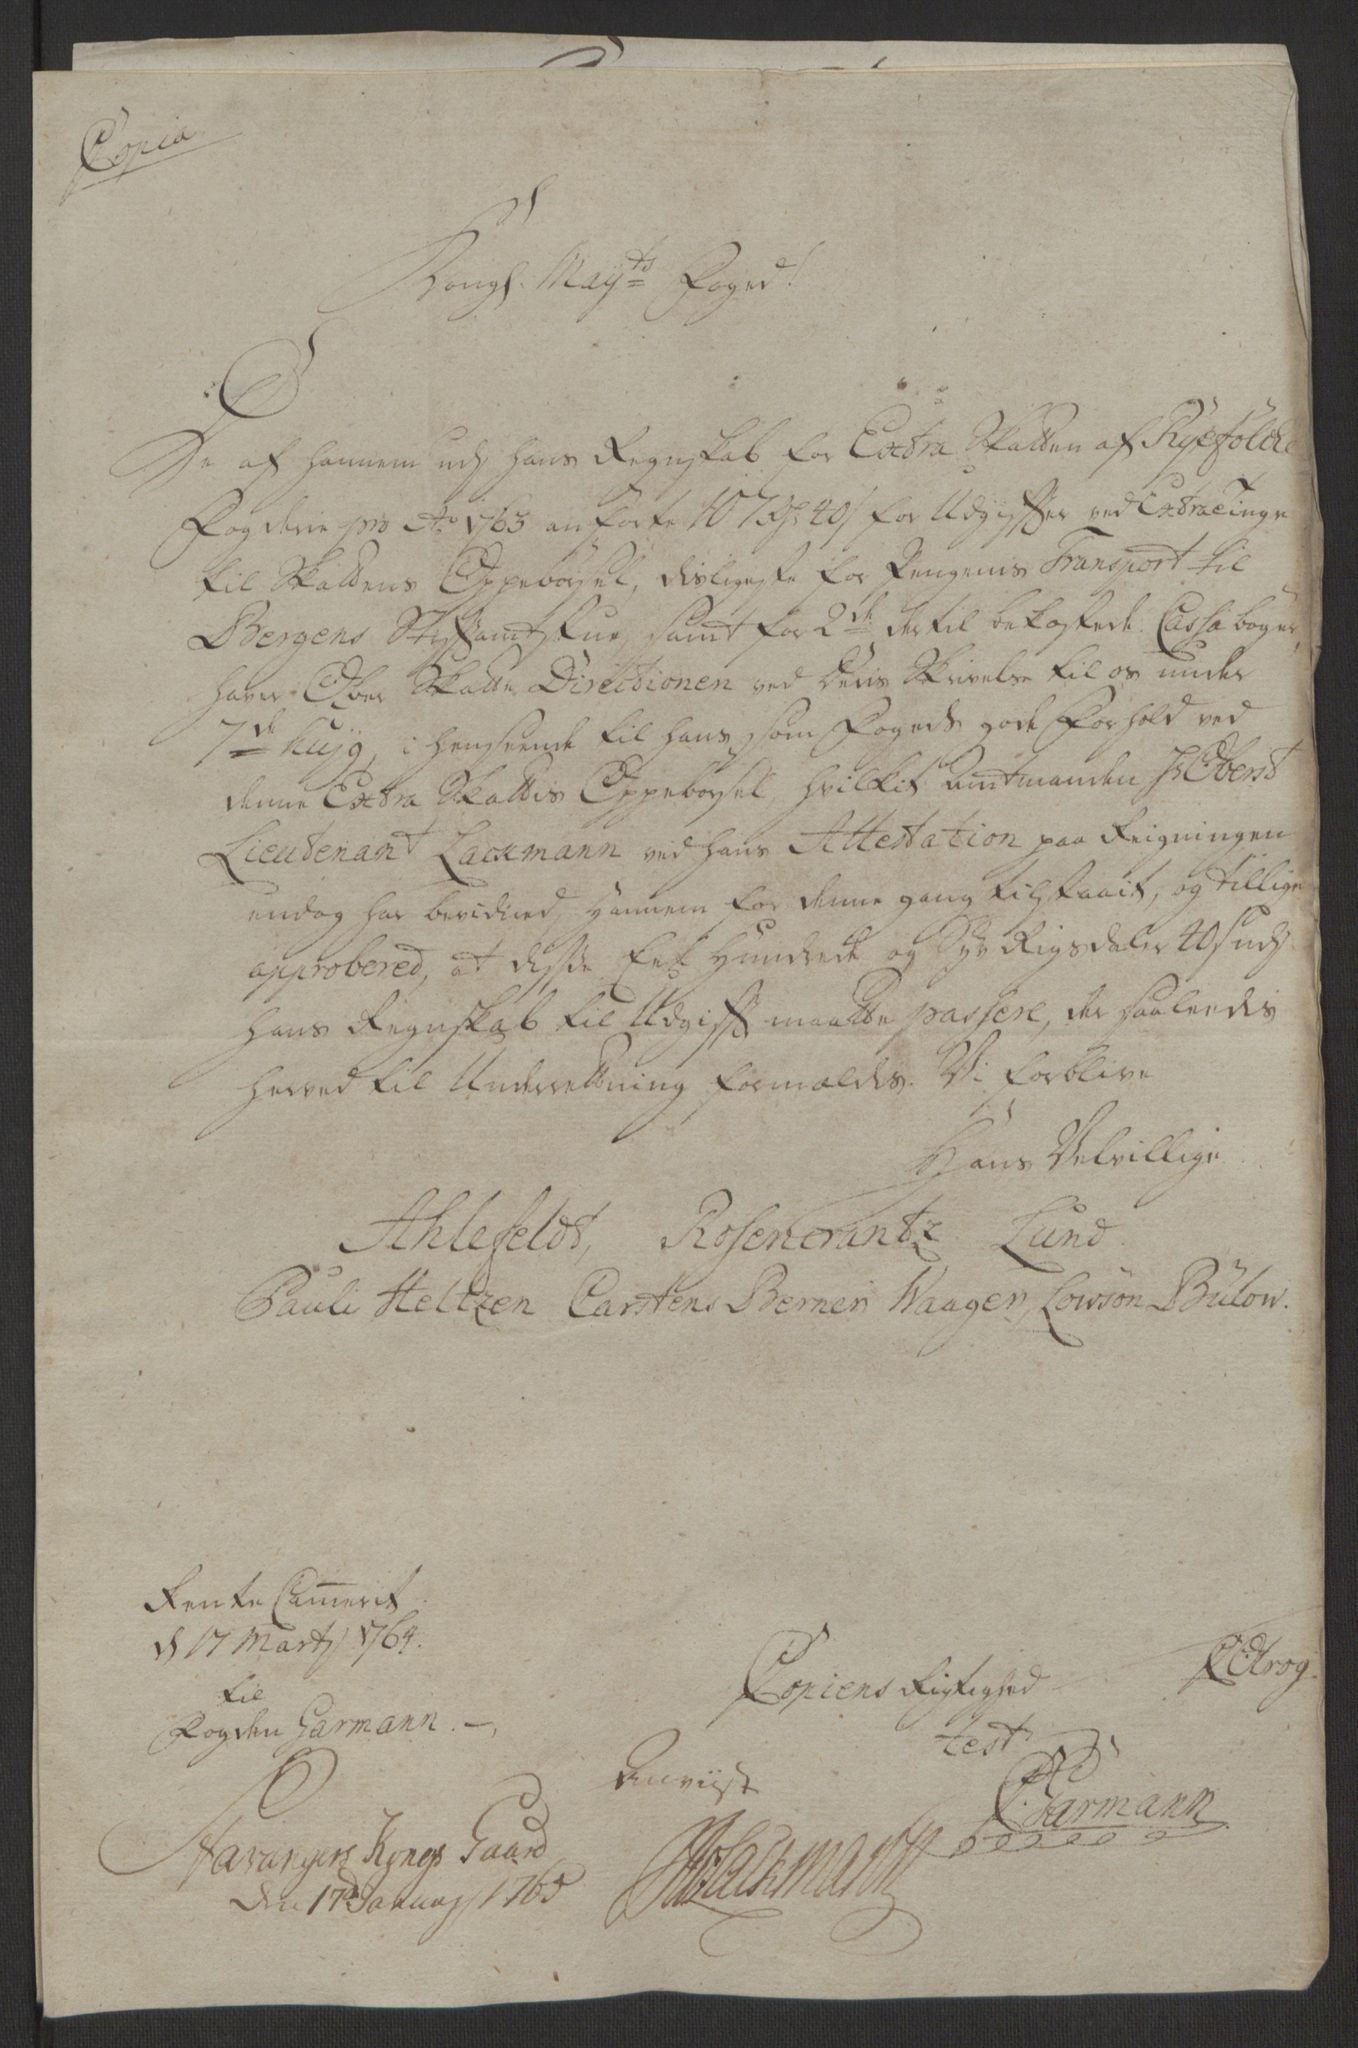 Copia
Kongl. Mayts Foged!
De af hannem udj hans Regnskab for Extra Skatten af Ryefölcke
Fogderie pro Ao 1763 anførte 107 Rdr 40 s for Udgifter ved Extra Tinge
til Skattens Oppebørsel, disligeste for Pengenis Transport til
Bergens Stiftamtstue, samt for 2de dertil bekostede Cassa bøger,
haver Ober Skatte Directionen ved Deris Skrivelse til os under
7de hujg, i henseende til hans som Fogeds gode Forhold ved
denne Extra Skattis Oppebørsel, hvilket Amtmanden Hr Oberst
Lieutenant Lackmann ved hans Attestation paa Reigningen
endog har bevidned, hannem for denne gang tilstaait, og tillige
approbered, at disse Eet Hundrede og Syv Rigsdaler 40 s udj
hans Regnskab til Udgift maatte passere, der saaledis
herved til Underretning formældes. Vi forblive
Hans Velvillige
Ahlefeldt, Rosencrantz Lund
Pauli Heltzen Carstens Berner Waager, Lowson Bülow.
Rente Cammerit
d 17 Martj 1764.
til
Fogden Garmann.
Copiens Rigtighed
test
Garmann
Anviist
Lackmann
Stavangers Kongs Gaard
den 17de Januarj 1765